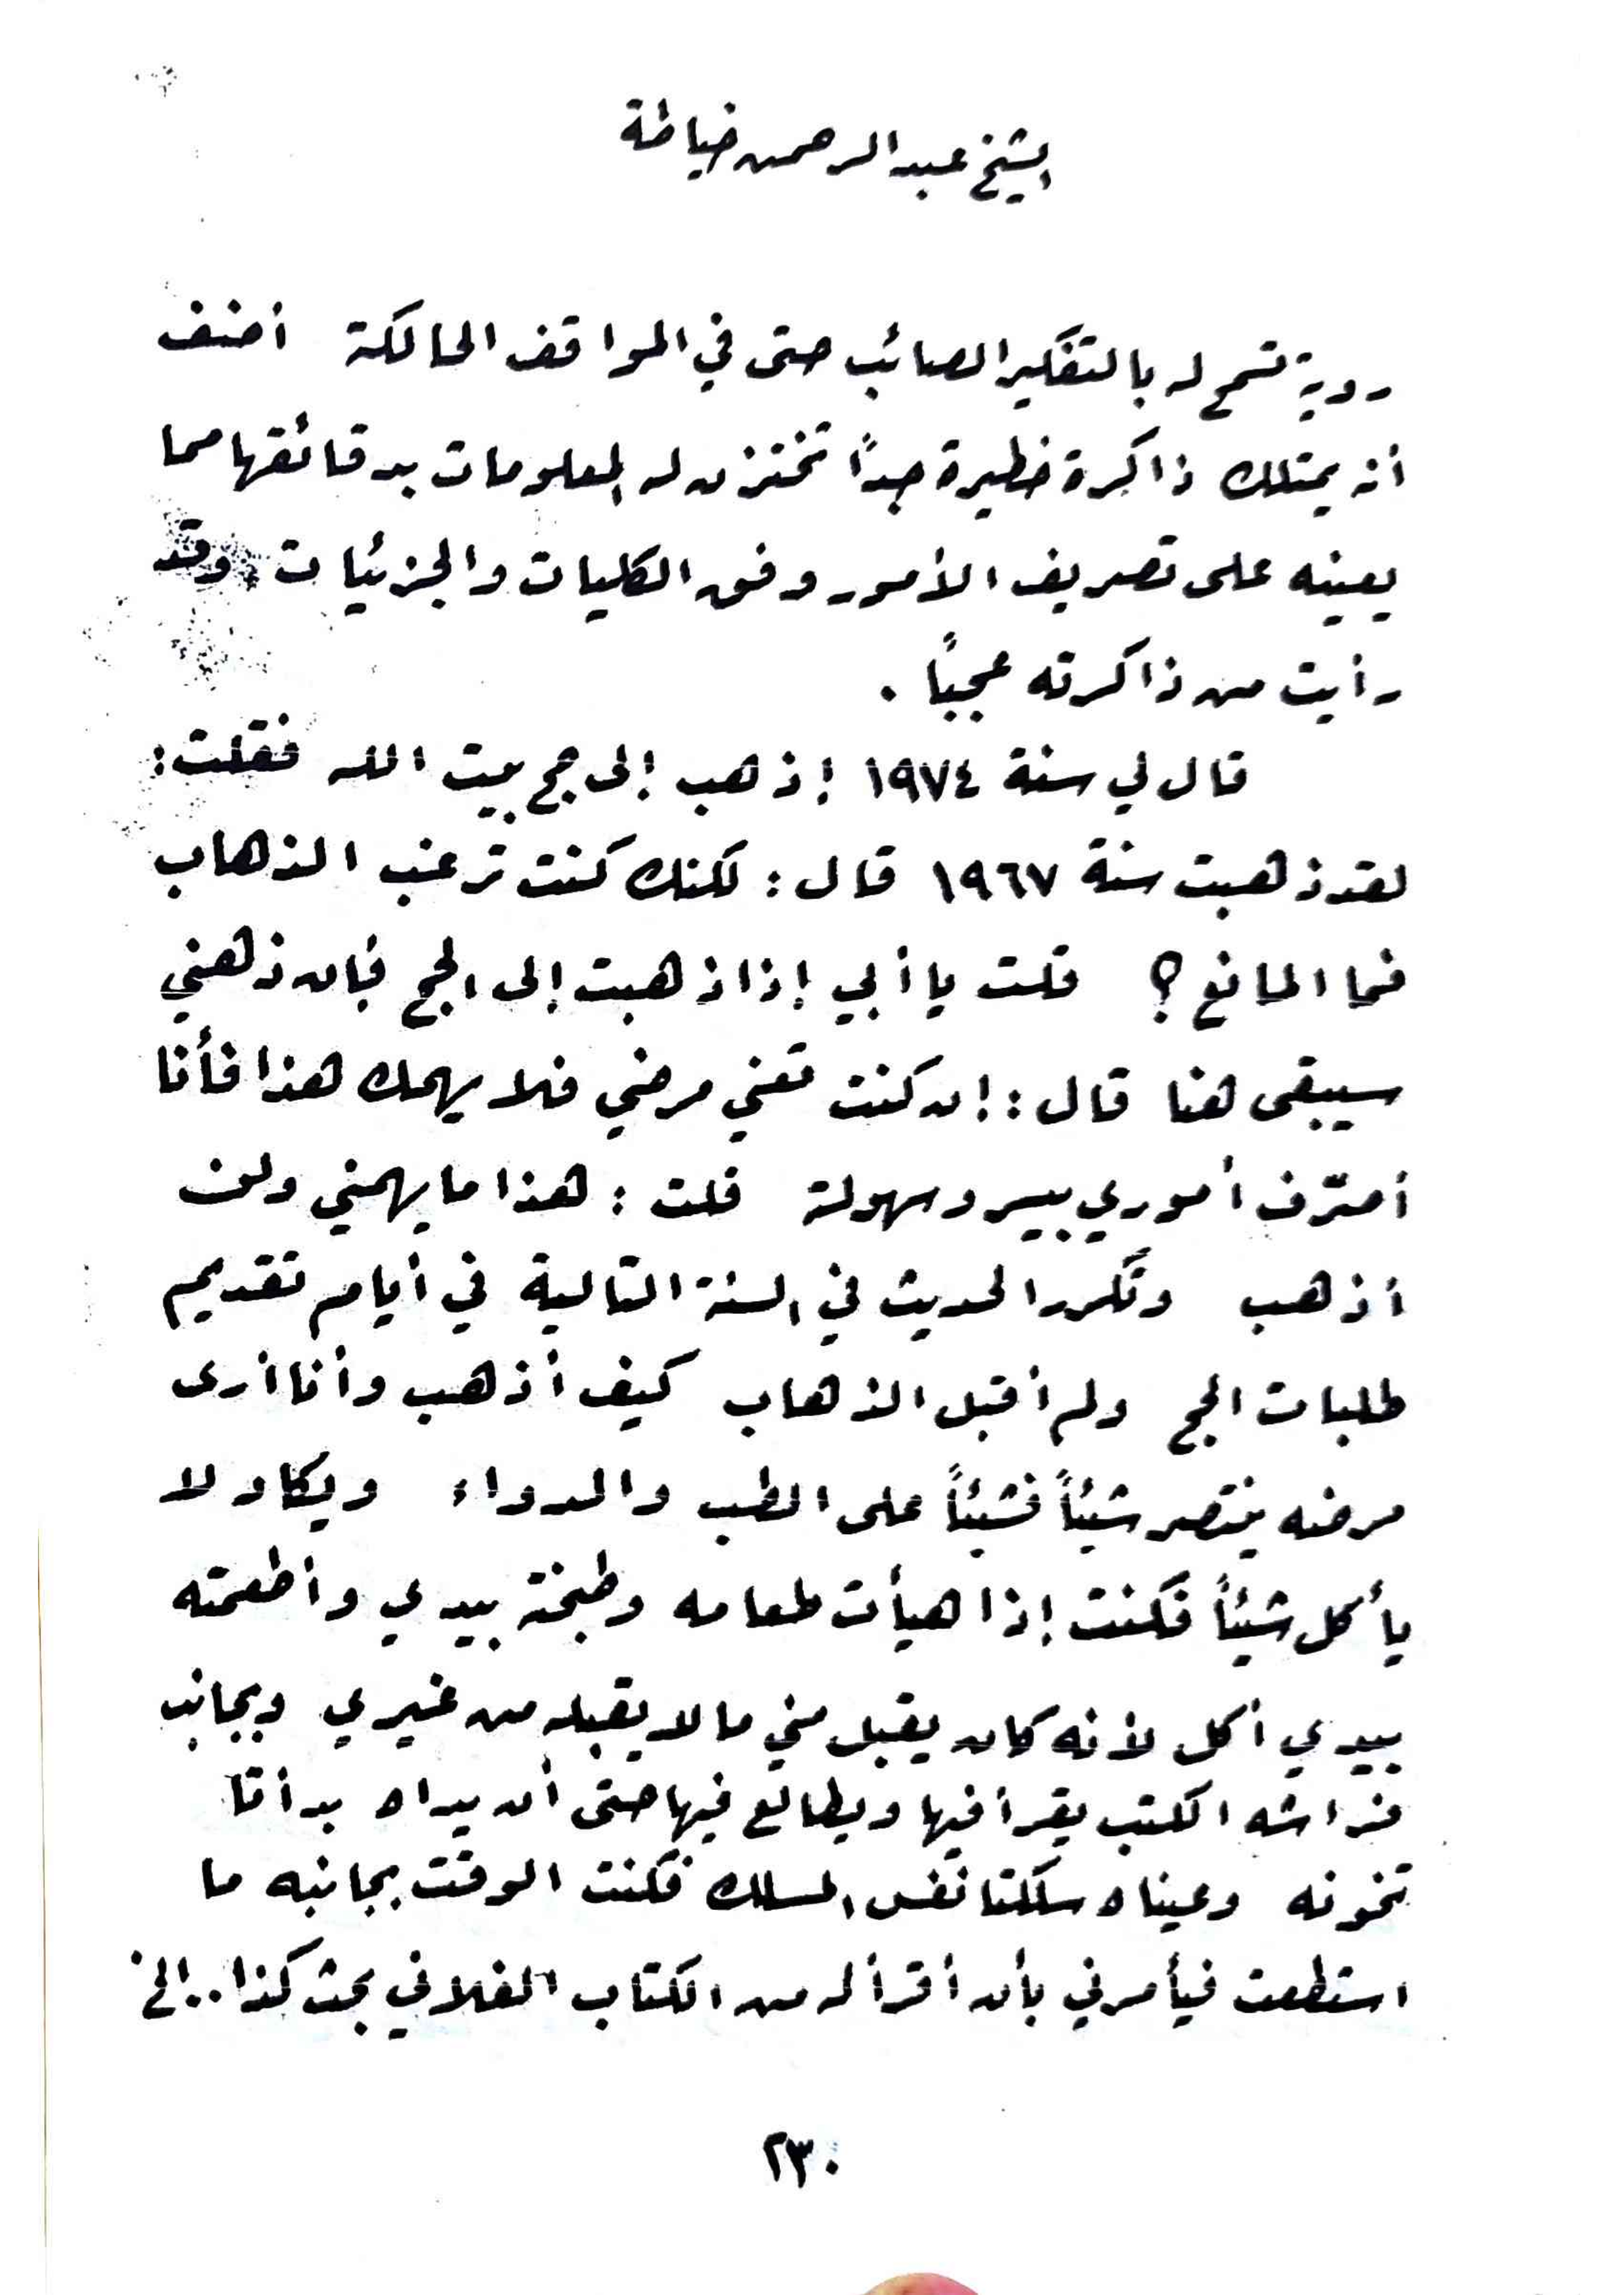 الشيخ عبد الرحمن خياطة
روية تسمح له بالتفكير الصائب حتى في المواقف الحالكة أضف
أنه يمتلك ذاكرة خطيرة جداً تختزن له المعلومات بدقائقها مما
يعينه على تصريف الأمور وفق الكليات والجزئيات وقد
رأيت من ذاكرته عجباً .
قال لي سنة ١٩٧٤ إذهب إلى حج بيت الله فقلت :
لقد ذهبت سنة ١٩٦٧ قال : لكنك كنت ترغب الذهاب
فما المانع ؟ قلت يا أبي إذا ذهبت إلى الحج فإن ذهني
سيبقى هنا قال : إن كنت تعني مرضي فلا يهمك هذا فأنا
أصرّف أموري بيسر وسهولة قلت : هذا ما يهمني ولن
أذهب وتكرر الحديث في السنة التالية في أيام تقديم
طلبات الحج ولم أقبل الذهاب كيف أذهب وأنا أرى
مرضه ينتصر شيئاً فشيئاً على الطب والدواء ويكاد لا
يأكل شيئاً فكنت إذا هيأت طعامه وطبخته بيدي وأطعمته
بيدي أكل لأنه كان يقبل مني ما لا يقبله من غيري وبجانب
فراشه الكتب يقرأ فيها ويطالع فيها حتى أن يداه بدأتا
تخونه وعيناه سلكتا نفس المسلك فكنت الوقت بجانبه ما
استطعت فيأمرني بأن أقرأ له من الكتاب الفلاني بحث كذا .. الخ
٢٣٠